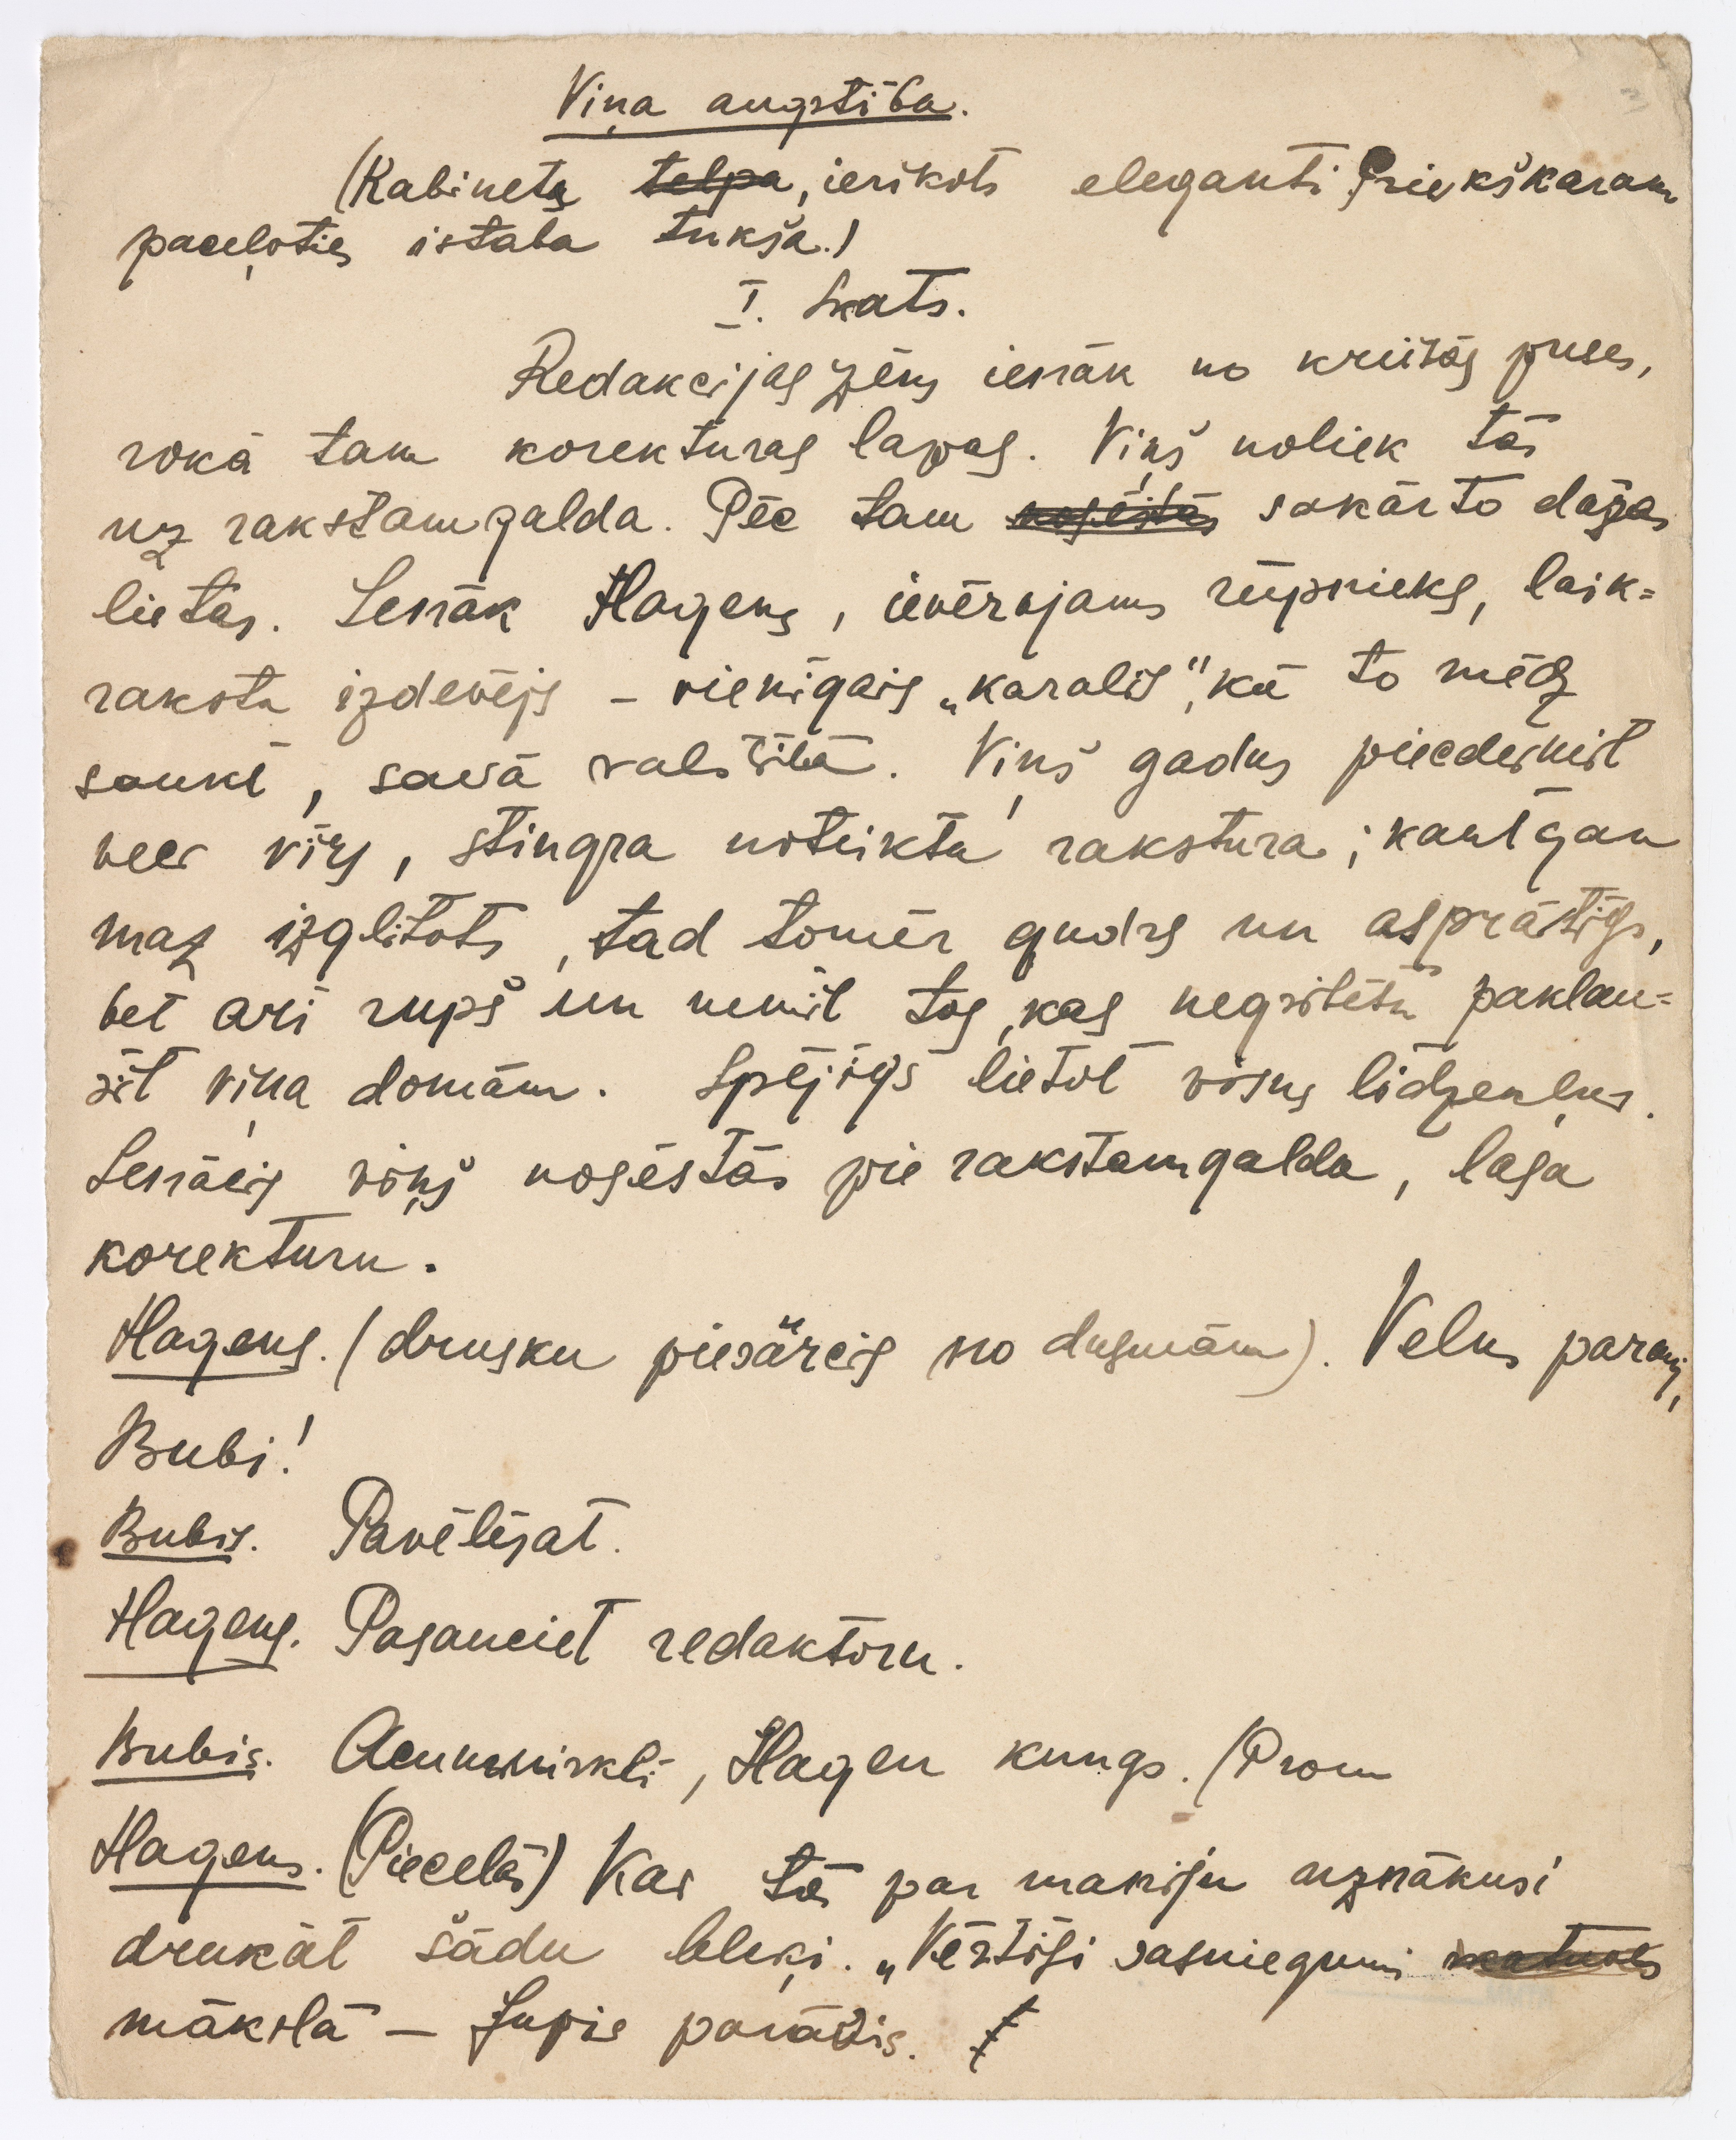 Viņa augstība.
(Kabinets telpa, ierīkots eleganti. Priekškaram
paceļoties istaba tukša.)
I. Skats.
Redakcijas zēns ienāk no kreisās puses,
rokā tam korekturas lapas. Viņš noliek tās
uz rakstamgalda. Pēc tam nosēstās sakārto dažas
lietas. Ienāk Hagens, ievērojams rūpnieks, laik=
rakstu izdevējs – vienīgais „karalis“, kā to mēdz
saukt, savā valstībā. Viņš gadus piecdesmit
vecs vīrs, stingra noteikta rakstura; kaut gan
maz izglītots, tad tomēr gudrs un asprātīgs,
bet ari rupš un nemīl tos, kas negribētu paklau=
sīt viņa domām. Spējīgs lietot visus līdzekļus.
Ienācis viņš nosēstās pie rakstamgalda, lasa
korekturu.
Hagens. (drusku piesārcis no dusmām). Velns parauj,
Bubi!
Bubis. Pavēlējat.
Hagens. Pasauciet redaktoru.
Bubis. Acumirkli, Hagen kungs. (Prom
Hagens. (Pieceļas) Kas tā par maniju uznākusi
drukāt šādu bleķi. „Vērtīgi sasniegumi
mākslā – Jupis parāvis.